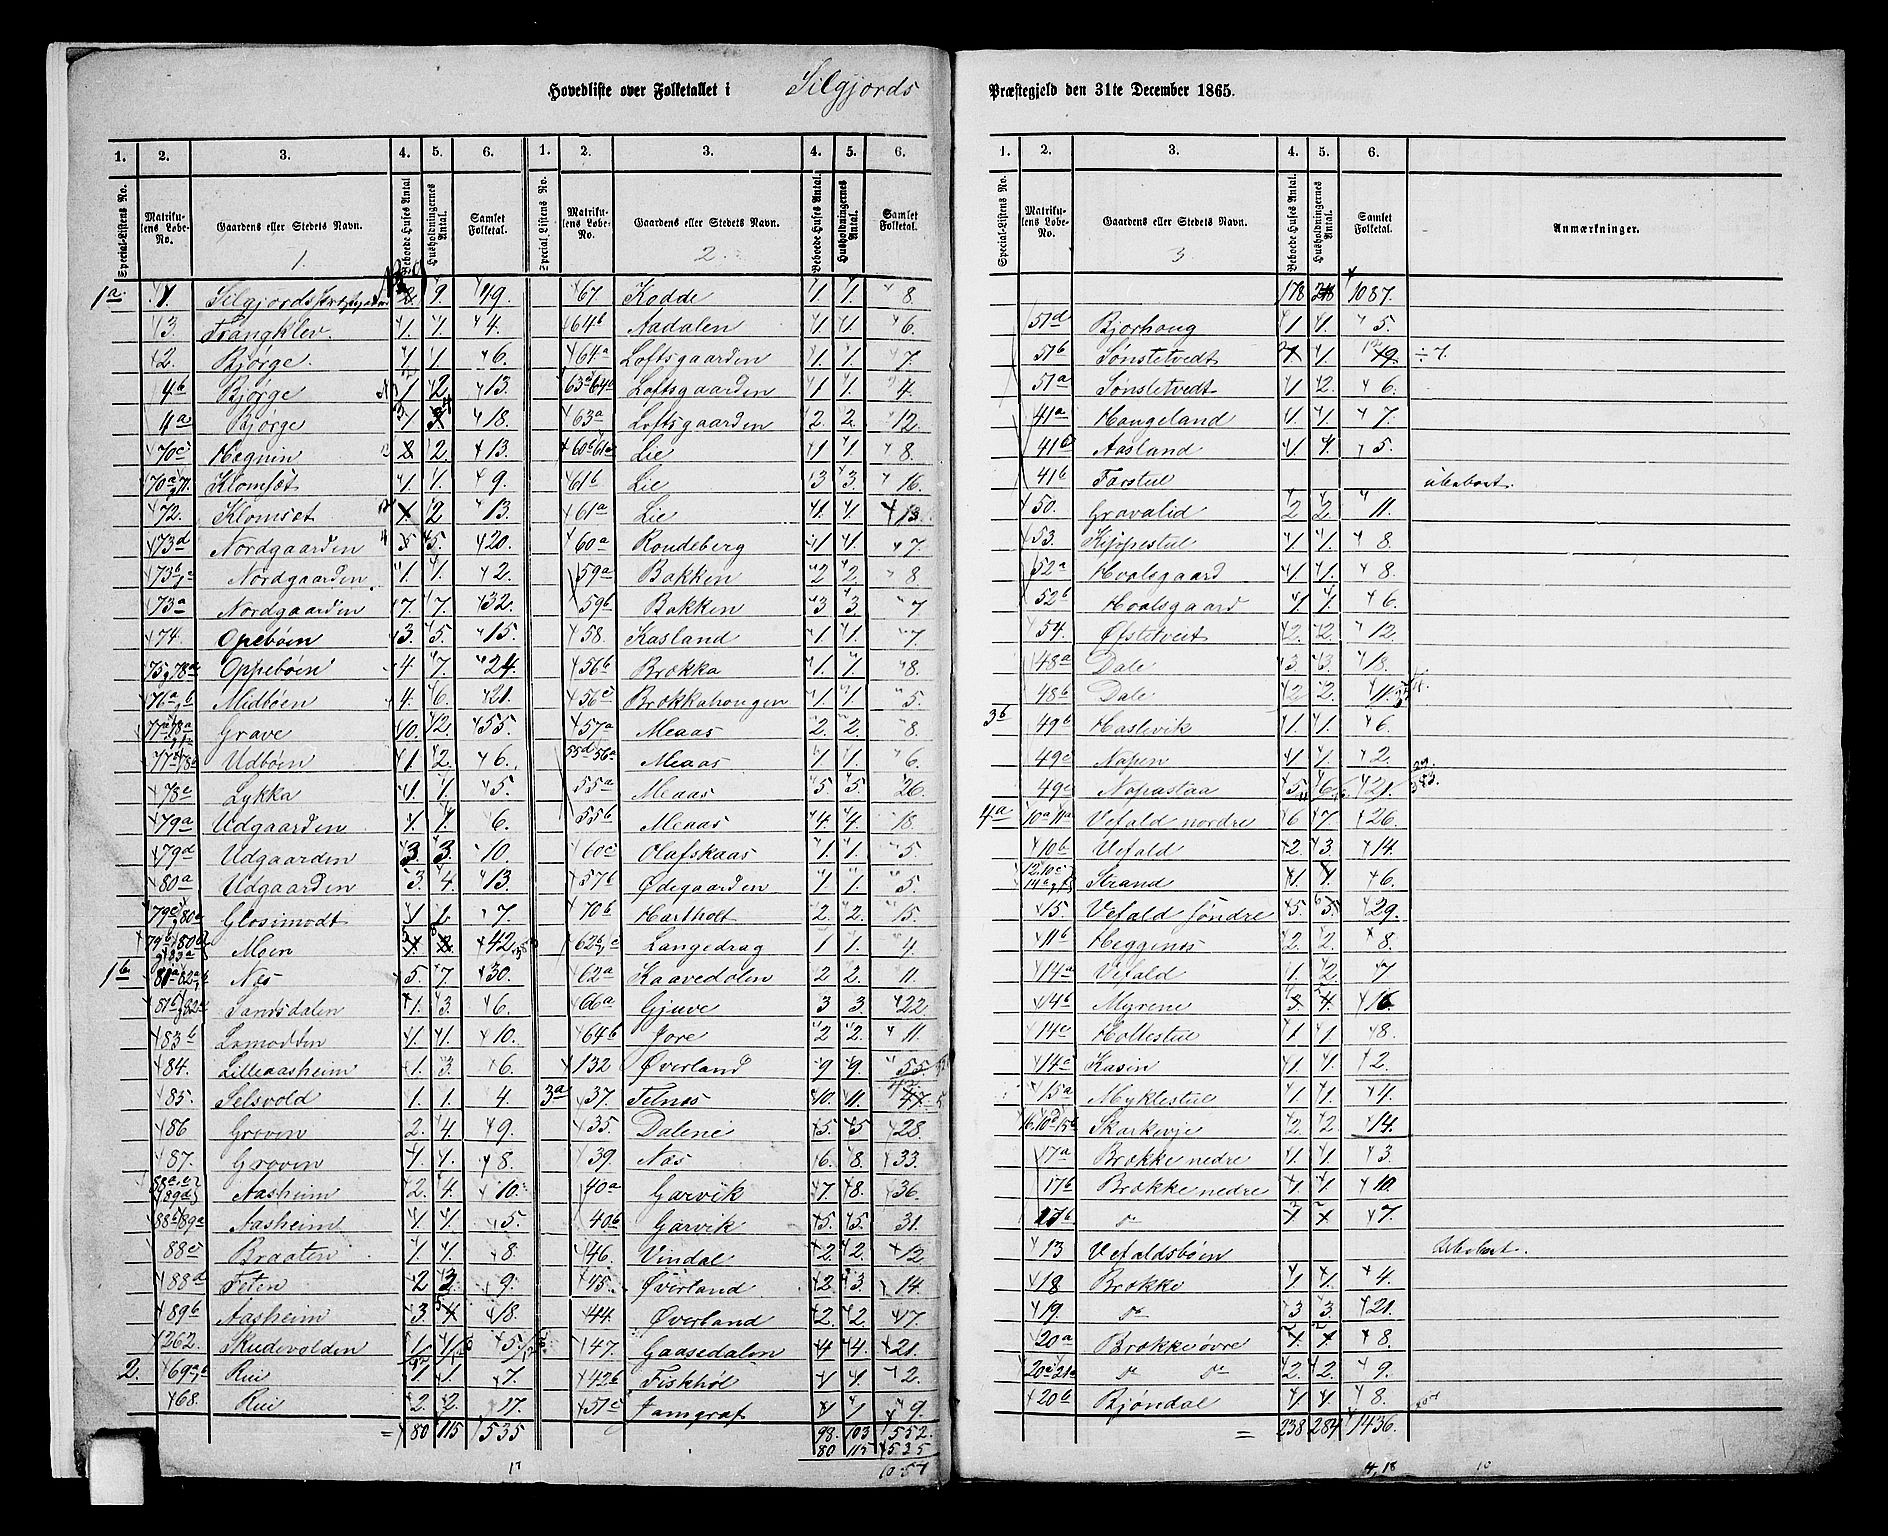 Hovedliste over Folketallet i Silgjords Præstegjeld den 31te December 1865.
1. 2. 3. 4. 5. 6. 1. 2. 3. 4. 5. 6.
Special-Listens No. Matrikulens Løbe-No. Gaardens eller Stedets Navn. Beboede Huses Antal. Husholdningernes Antal. Samlet Folketal. Special-Listens No. Matrikulens Løbe-No. Gaardens eller Stedets Navn. Beboede Huses Antal. Husholdningernes Antal. Samlet Folketal.
1. 2.
1a 1. Silgjords 9. 49. 67. Kodde 1. 1. 8.
3. Trangklev 1. 1. 4. 64b Aadalen 1. 1. 6.
2. Bjørge 1. 1. 6. 64a Loftsgaarden 1. 1. 7.
4b Bjørge 1. 2. 13. 63a 64a Loftsgaarden 1. 1. 4.
4a Bjørge 1 18. 63a Loftsgaarden 2. 2. 12.
70c Hegnin 2. 13. 60b 61c Lie 1 1. 8.
70a 71. Klomset 1. 1. 9. 61b Lie 3 3. 16.
72. Klomset 2 13. 61a Lie 1. 1. 13.
73d Nordgaarden 5. 20. 60a Roudeberg 1 1. 7.
73b Nordgaarden 1. 1. 2. 59a Bakken 2 2. 8.
73a Nordgaarden 7. 7. 32. 59b Bakken 3 3. 7
74. Opebøen 3. 5. 15. 58. Kasland 1. 1. 7.
75 78a Oppebøen 4. 7. 24. 56b Brokka 1. 1. 8.
76a b Midbøen 4. 6. 21. 56c Brokkahougen 1. 1. 5.
77a 78a Grave 10. 12. 55. 57a Meaas 2. 2. 8.
77 78b Udbøen 1. 2. 6. 55d 56a Meaas 1. 1. 6.
78c Lykka 1. 1. 5. 55a Meaas 5. 5. 26.
79a Udgaarden 1. 1. 6. 55b Meaas 4. 4. 18.
79d Udgaarden 3. 3. 10. 60c Olafskaas 1. 1. 5.
80a Udgaarden 3. 4. 13. 57b Ødegaarden 1. 1. 5.
79c 80 Glosimodt 1 7. 70b Hartholt 2. 2. 15.
79b 80 Moen 42. 62 c Langedrag 1 1. 4.
1b 81a 82a Næs 5. 7. 30. 62a Kaavedalen 2 2. 11.
81b 82 Sandsdalen 1. 3. 6. 66a Gjuve 3 3. 22.
83b Lomodten 1. 1. 10. 64b Jore 2 2. 11.
84. Lilleaasheim 1. 3. 6. 132 Øverland 9 9. 55.
85. Selsvold 1. 1. 4. 3a 37. Felnes 10. 11. 47.
86 Groven 2. 4. 9. 35. Dalene 5. 5 28.
87. Groven 1. 1. 8. 39. Næs 6. 8. 33.
88a 89d Aasheim 2. 4. 10. 40a Garvik 7. 8. 36.
88b 89a Aasheim 1. 1. 5. 40b Garvik 5. 5 31.
88c Braaten 1. 1. 8. 46. Vindal 2. 2. 12
88d Teten 2 3. 9. 45. Øverland 2. 3. 14.
89b Aasheim 3. 18. 44. Øverland 2. 2. 17.
262. Skudevolden 1 1 5. 47. Gaasedalen 4 4. 21.
2. 69a b Rui 1. 1. 7. 42b Fiskhøl 1 1. 2.
68. Rui 2. 2. 17. 51c Jamgraf 1 1. 9.
= 80 115 535 98. 103 552.
80 115 535
17

1. 2. 3. 4. 5. 6.
Special-Listens No. Matrikulens Løbe-No. Gaardens eller Stedets Navn. Beboede Huses Antal. Husholdningernes Antal. Samlet Folketal. Anmærkninger.
3.
178 218 1087.
51d Bjorhoug 1 1. 5.
51b Sønstetvedt 1. 19. ÷7.
51a Sønstetvedt 1 2. 6.
41a Haugeland 1. 1. 7.
41b Aasland 1 1. 5.
41b Farstul ubeboet.
50. Gravalid 2 2. 11.
53. Kjøpestul 1. 1. 8.
52a Hvalsgaard 1. 1. 8.
52b Hvalsgaard 1. 1. 6.
54. Øfstetveit 2. 2. 12.
48a Dale 3 3. 18.
48b Dale 2 2. 11.
3b 49b Haslevik 1. 1. 6.
49c Napen 1 1. 2.
49c Napastaa 5 6. 21.
4a 10a 11a Vefald nordre 6 7. 26.
10b Vefald 2. 3. 14.
12 10c 14a Strand 1. 1. 6.
15. Vefald søndre 5. 5. 29.
11b Heggenes 2. 2. 8.
14a Vefald 1. 2. 7
14b Myrene 3 4 16.
14c Holtestul 1 1. 8.
14c Kasin 1. 1. 2.
15a Myklestul 1. 1. 4.
16. 10d 15b Skarkevje 2 2. 14.
17a Brokke nedre 1. 1. 3
17b Brokke nedre 1 1. 10.
17b do 7.
13 Vefaldsbøen Ubeboet.
18 Brokke 1 1. 4.
19. do 3 3 21.
20a Brokke øvre 8.
20c 21a do do 2. 2. 9.
20b Bjøndal 1. 1. 8.
= 238 284 1436.
4, 18 10